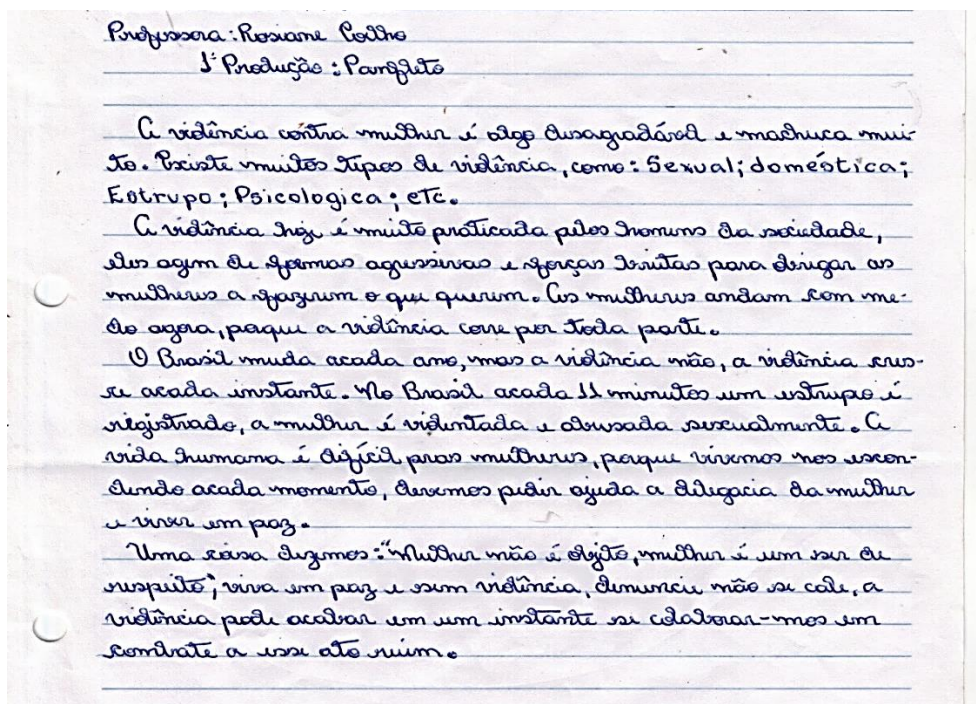 Professora: Rosiane Coelho
1ª Produção: Panfleto
A violência contra mulher é algo desagradável e machuca mui-
to. Existe muitos tipos de violência, como: Sexual; doméstica;
Estrupo; Psicologica; etc.
A violência hoje é muito praticada pelos homens da sociedade,
eles agem de formas agressivas e forças brutas para obrigar as
mulheres a fazerem o que querem. As mulheres andam com me-
do agora, porque a violência corre por toda parte.
O Brasil muda acada ano, mas a violência não, a violência cres-
ce acada instante. No Brasil acada 11 minutos um estrupo é
registrado, a mulher é violentada e abusada sexualmente. A
vida humana é difícil pras mulheres, porque vivemos nos escon-
dendo acada momento, devemos pedir ajuda a delegacia da mulher
e viver em paz.
Uma coisa dizemos: "Mulher não é objeto, mulher é um ser de
respeito", viva em paz e sem violência, denuncie não se cale, a
violência pode acabar em um instante se colaborar-mos em
combate a esse ato ruim.